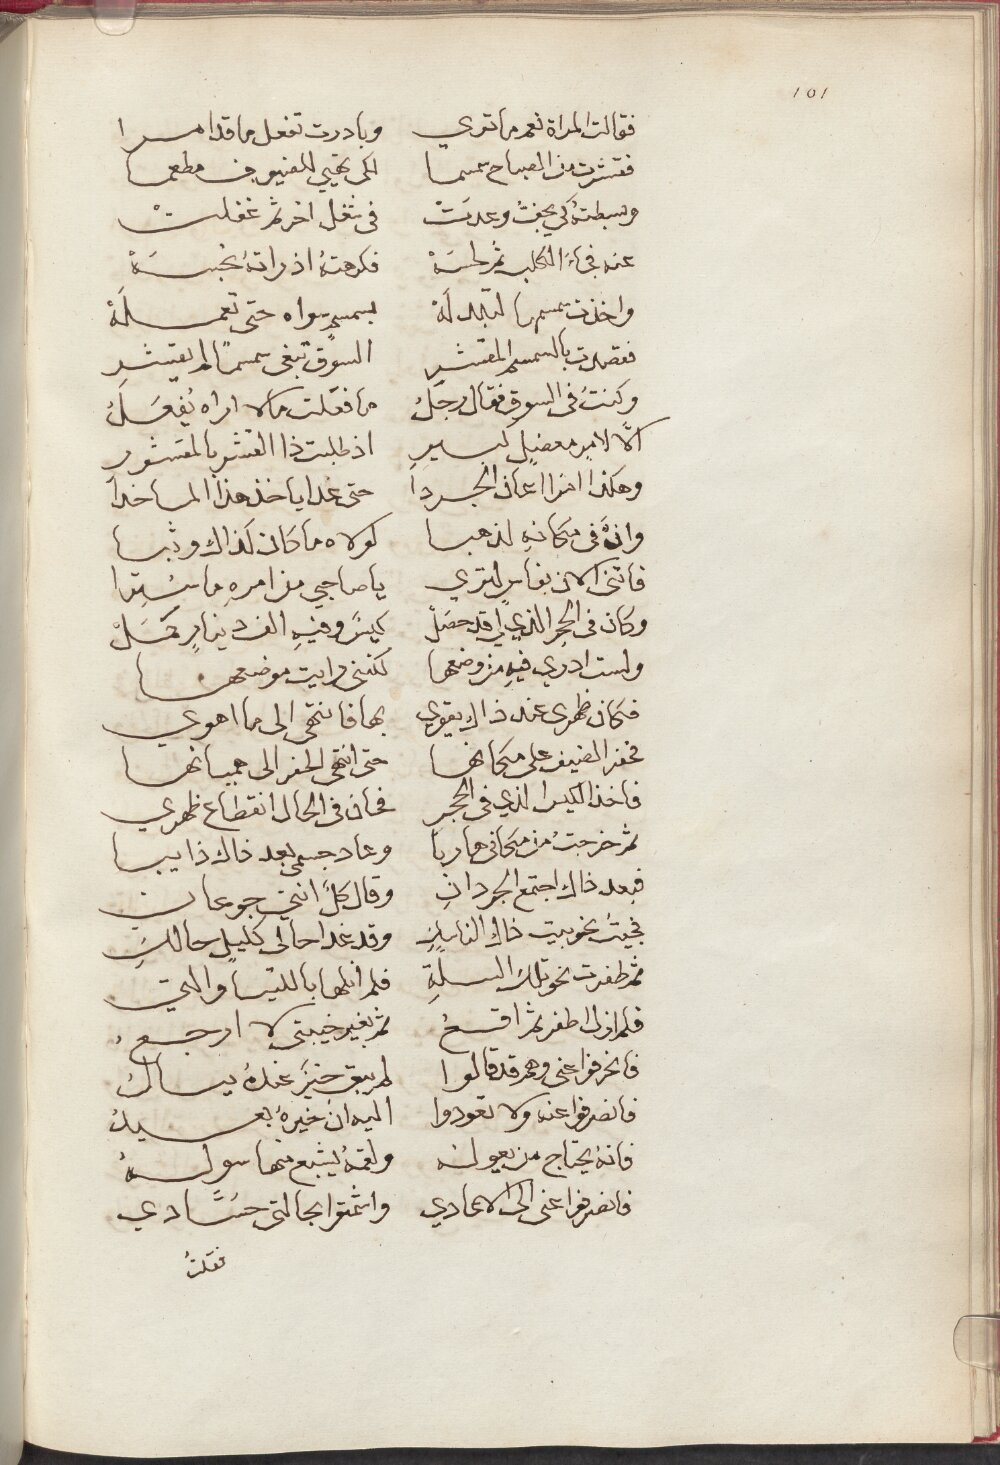 101
فقالت المراة نعم ما ترى وبادرت تفعل ما قد امرا
فقشرت من الصباح سمسما لكي تهيي للضيوف مطعما
وبسطته كي يجف وعدت في شغل اخر ثم غفلت
عنه فجاء الكلب ثم لحسه فكرهته اذ راته نجسه
واخذت سمسمها لتبدله بسمسم سواه حتى تعمله
فقصدت بالسمسم المقشر السوق تبغي سمسما لم يقشر
وكنت في السوق فقال رجل ما فعلت كالا اراه يفعل
الا لامر معضل كبير اذ طلبت ذا القشر بالمقشور
وهكذا امر اعان الجردا حتى غدا ياخذ هذا الماخذا
وانه في مكانه لذهبا لولاه ما كان لذاك وثبا
فاتني الان بفاس لترى يا صاحبي من امره ما سترا
وكان في الجحر الذي لي قد حصل كيس وفيه الف دينار كمل
ولست ادري فيه من وضعها لكنني رايت موضعها
فكان ظهري عند ذاك يقوي بها فانتهى الى ما اهوي
فحفر الضيف على مكانها حتى انتهى الحفر الى هميانها
فاخذ الكيس الذي في الجحر فحان في الحال انقطاع ظهري
ثم خرجت من مكاني هاربا وعاد جسمي بعد ذاك ذايبا
فبعد ذاك اجتمع الجردان وقال كل انني جوعان
فجيت نحو بيت ذاك الناسك وقد غدا حالي كليل حالك
ثم طفرت نحو تلك السلة فلم انلها باللتيا والتي
فلم ازل اطفر ثم اقع ثم بغير خيبتي لا ارجع
فانحرفوا عني وهم قد قالوا لم يبق خير عنده يسال
فانصرفوا عنه ولا تعودوا اليه ان خيره بعيد
فانه يحتاج من يعوله ولقمة يشبع منها سوله
فانصرفوا عني الى الاعادي واشمتوا بحالتي حسادي
فقلت